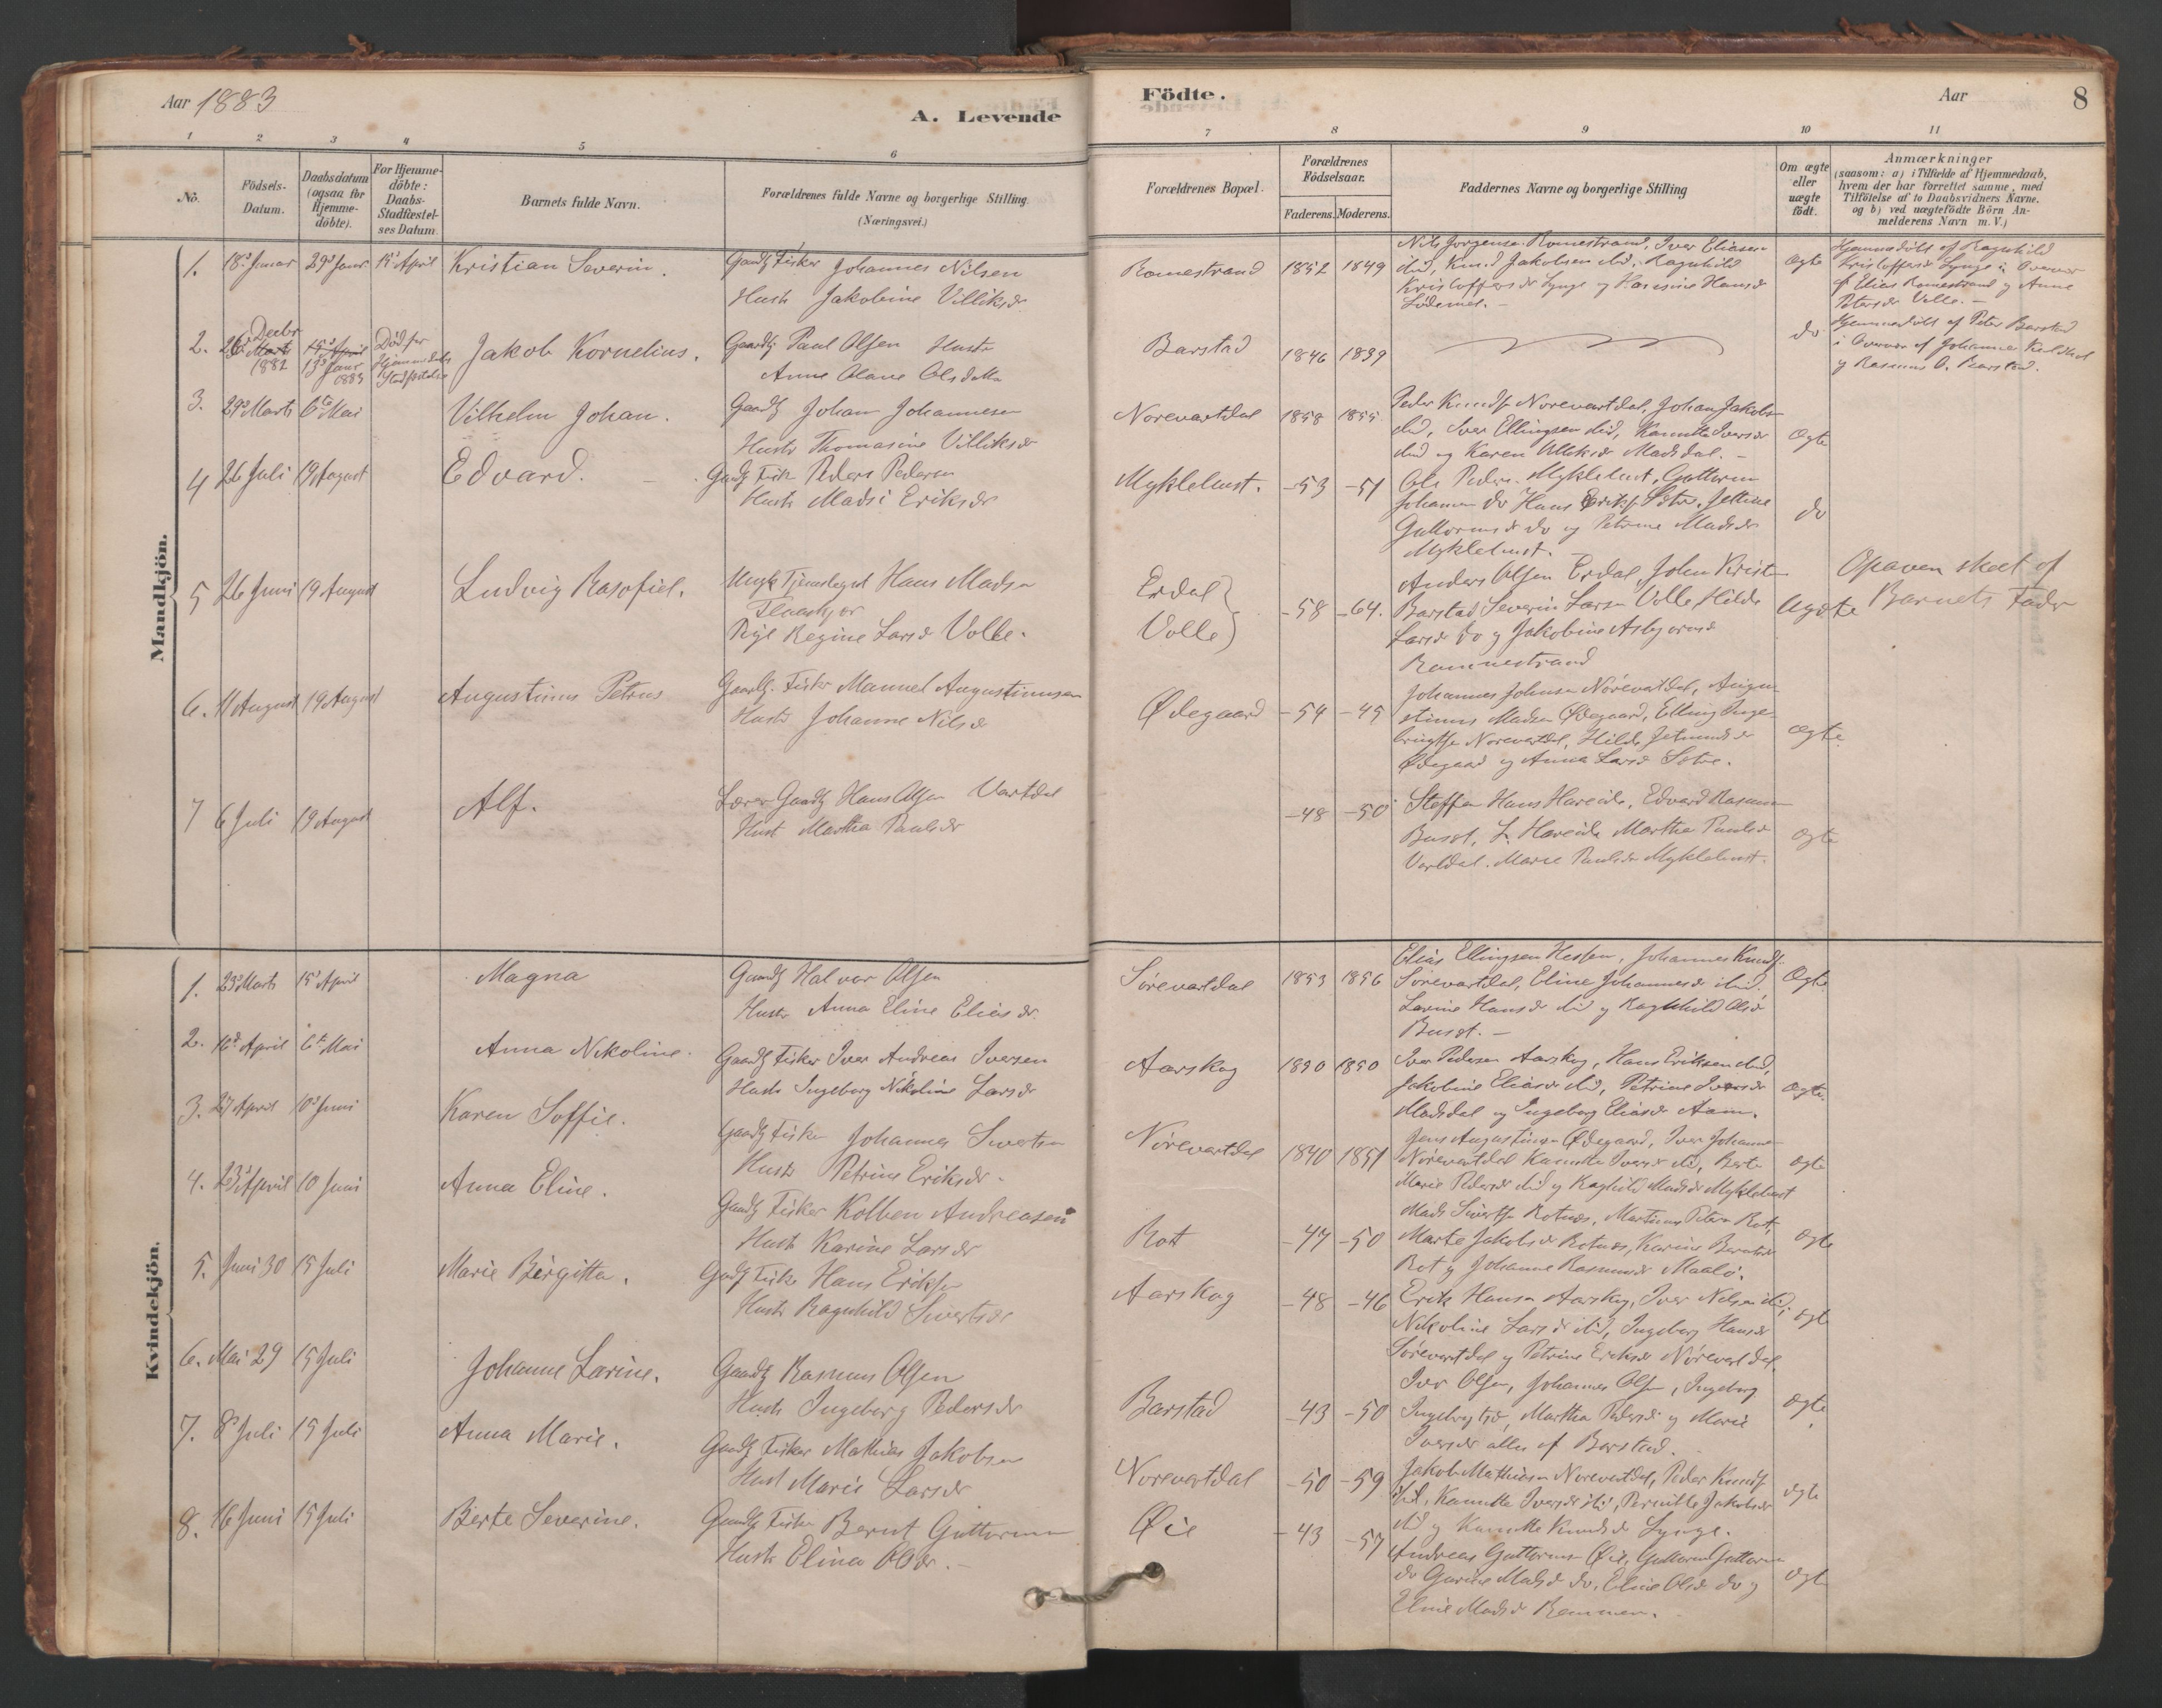 Aar 1883
A. Levende
Födte.
Aar
8
1
2
3
4
5
6
7
8
9
10
11
No.
Födsels-
Datum.
Daabsdatum
(ogsaa for
Hjemme-
döbte).
For Hjemme-
döbte:
Daabs-
Stadfæstel-
ses Datum.
Barnets fulde Navn.
Forældrenes fulde Navne og borgerlige Stilling.
(Næringsvei.)
Forældrenes Bopæl.
Forældrenes
Födselsaar.
Faderens.
Moderens.
Faddernes Navne og borgerlige Stilling
Om ægte
eller
uægte
födt.
Anmærkninger
(saasom: a) i Tilfælde af Hjemmedaab,
hvem der har forrettet samme, med
Tilföielse af to Daabsvidners Navne.
og b) ved uægtefödte Börn An-
melderens Navn m. V.)
Mandkjön.
1. 18de Januar 29de Janr 15de April Kristian Severin.
Gaardbr Fisker Johannes Nilsen
Hustr Jakobine Villiksdr
Romestrand 1852 1849
Nils Jorgensen Romestrand, Iver Eliasen
ibid, Knud Jakobsen ibid, Ragnhild
Kristoffersdr Lynge og Hansine Hansdr
ægte
Hjemmedøbt af Ragnhild
Kristoffersdr Lynge i Overvær
af Elias Romestrand og Anne
Petersdr Volle. –
2. Decbr
Marts
1882
15de April
Janr
1883
Død før
Hjemmedaabs
Jakob Kornelius.
Gaardbr Paul Olsen Hustr
Anne Olave Olsdatter
Barstad 1846 1839
do
Hjemmedøbt af Peter Barstad
i Overvær af Johannes
og Rasmus O. Barstad.
3. 29de Marts 6te Mai
Vilhelm Johan.
Gaardbr Johan Johannesen
Hustr Thomasine Villiksdr
Norevartdal 1858 1855
Peder Knuds Norevartdal, Johan Jakobsen
ibid, Iver Ellingsen ibid, Kanutte Iversdr
ibid og Karen Villiksdr Madsdal. –
ægte
4 26 Juli 19 August
Edvard.
Gaardbr Fisker Peder Pedersen
Hustr Madsi Eriksdr
Myklebust. –53 –51
Ole Peders. Myklebust, Guttorm
Johannes do Hans Eriks. Sætre, Jettine
Guttormsdr do og Petrine Madsdr
Myklebust.
do
5 26 Juni 19 August
Ludvig Rasofiel.
Ungk Tjenstegut Hans Madsen
Flaaskjer
Pige Regine Larsdr Volle.
Erdal
Volle –58 –64.
Anders Olsen Erdal, John Krist.
Barstad, Severin Larsen Volle, Hilde
Larsdr do og Jakobine Asbjørnsdr
Rommestrand
Uægte
Opgaven skeet af
Barnets Fader
6. 11 August 19 August
Augustinus Petrus
Gaardbr. Fisker Manuel Augustinusen
Hustr Johanne Nilsdr
Ødegaard –54 –45
Johannes Johnsen Nórevartdal, Augu-
stinus Madsen Ødegaard, Elling Inge-
brigtsen Norevartdal, Hilde Jetmundsdr
Ødegaard og Anna Larsdr Sætre.
ægte.
7 6 Juli 19 August
Alf.
Lærer Gaardbr Hans Olsen Vartdal
Hustr Martha Paulsdr
–48 –50
Steffen Hans Hareide, Edvard Rasmusen
Buset, L. Hareide Martha Paulsdr
Vartdal. Marie Paulsdr Myklebust.
ægte
Kvindekjön.
1. 23de Marts 15de April
Magna
Gaardbr Halvor Olsen
Hustr Anna Eline Eliasdr.
Sörevartdal 1853 1856
Elias Ellingsen Hessen, Johannes Knuds.
Sörevartdal, Eline Johannesdr ibid.
Lavine Hansdr ibid og Ragnhild Olsdr
Buset. –
Ægte
2. 16de April 6te Mai
Anna Nikoline.
Gaardbr Fisker Iver Andreas Iversen
Hustr Ingeborg Nikoline Larsdr
Aarskog 1850 1850
Iver Pedersen Aarskog, Hans Eriksen ibid,
Jakobine Eliasdr ibid, Petrine Iversdr
Madsdal og Ingeborg Eliasdr Aam.
Ægte.
3. 27 April 10de Juni
Karen Soffie.
Gaardbr Fisker Johannes Sivertsen
Hustr Petrine Eriksdr.
Nórevartdal 1840 1851
Jens Augustinusen Ødegaard, Iver Johannes
Nórevartdal Kanutte Iversdr ibid, Berte
Marie Pedersdr ibid og Raghild Madsdr Myklebust
ægte
4. 23de April 10 Juni
Anna Eline.
Gaardbr Fisker Kolben Andreasen
Hustr Karine Larsdr
Rot –47 –50
Mads Sivertsen Rotnes, Martinus Peters Rot,
Marte Jakobsdr Rotnes, Karine Berntsdr
Rot og Johanne Rasmusdr Maalö.
ægte
5. Juni 30 15 Juli
Marie Birgitta.
Gaardbr Fisker Hans Eriksen
Hustr Ragnhild Sivertsdr
Aarskog –48 –46
Erik Hansen Aarskog, Iver Nelsen ibid,
Nikoline Larsdr ibid, Ingeborg Hansdr
Sörevartdal og Petrine Eriksdr Nórevartdal,
ægte
6. Mai 29 15 Juli
Johanne Lavine.
Gaardbr Rasmus Olsen
Hustr Ingeborg Pedersdr
Barstad –43 –50
Iver Olsen, Johannes Olsen, Ingeborg
Ingebrigtsdr, Martha Pedersdr og Marie
Iversdr alle af Barstad.
ægte
7. 8de Juli 15 Juli
Anna Marie.
Gaardbr Fisker Mathias Jakobsen
Hustr Marie Larsdr
Norevartdal –50 –59
Jakob Mathiasen Norevartdal, Peder Knuds
ibid, Kanutte Iversdr ibid, Pernille Jakobsdr
ibid og Kanutte Knudsdr Lynge.
ægte
8. 16 Juni 15 Juli
Berte Severine.
Gaardbr Fisker Bernt Guttormsen
Hustr Elina Olsdr. –
Øie –43 –57
Andreas Guttormsen Øie, Guttorm Guttormsen
do Gurine Madsdr do, Eline Olsdr do og
Eline Madsdr Remmen.
ægte